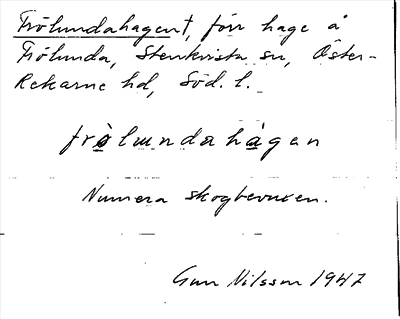 Frölundahagent, förr hage å
Frölunda, Stenkvista sn, Öster-
Rekarne hd, Söd. l.
frölundahagen
Numera skogbevuxen.
Gun Nilsson 1947